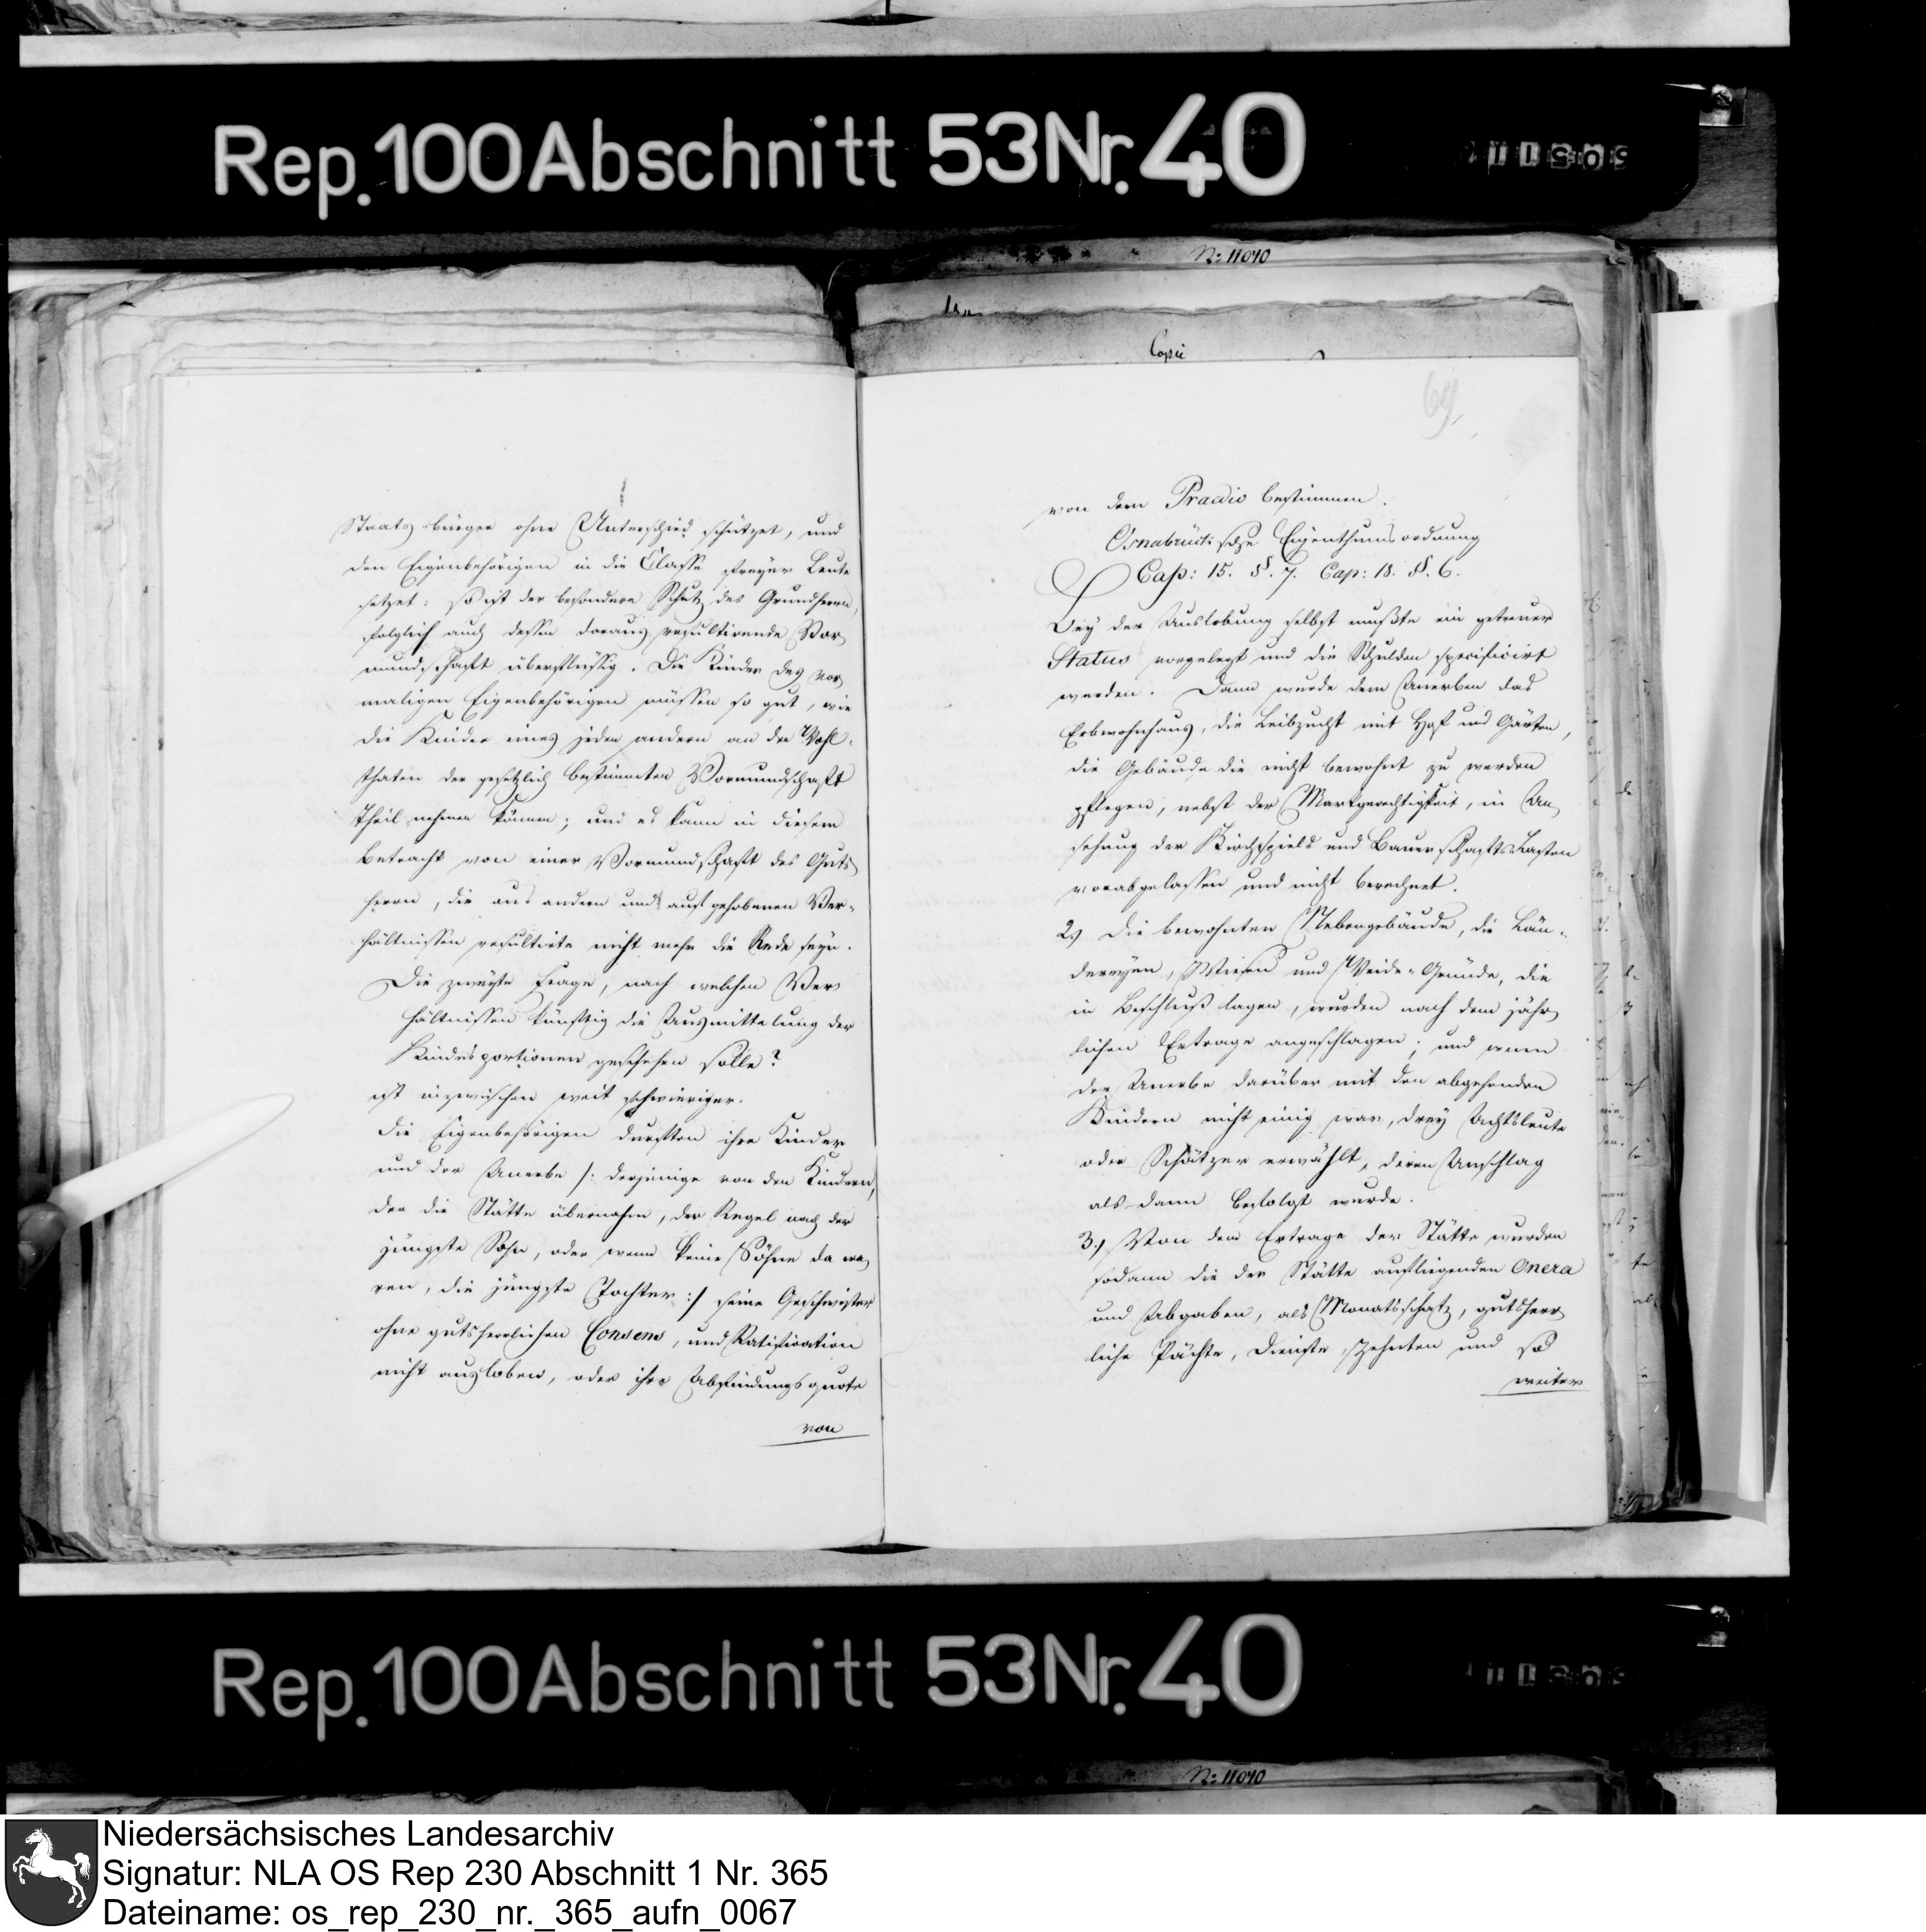 Rep. 100 Abschnitt 53 Nr. 40
N: 11040
Copie
69.
Staats-bürger ohne Unterschied schützet, und
den Eigenbehörigen in die Classe freyer Leute
setzet: so ist der besondere Schutz des Grundherrn,
folglich auch dessen daraus resultirende Vor
mundschaft überflüssig. Die Kinder des vor
maligen Eigenbehörigen müssen so gut, wie
die Kinder eines jeden andern an den Wohl-
thaten der gesetzlich bestimmten Vormundschaft
Theil nehmen können; und es kann in diesem
Betracht von einer Vormundschaft des Guts
herrn, die aus andern und aufgehobenen Ver-
hältnissen resultirte nicht mehr die Rede seyn.
Die zweyte Frage, nach welchen Ver
hältnissen künftig die Ausmittelung der
Kindesportionen geschehen solle?
ist inzwischen weit schwieriger.
Die Eigenbehörigen durften ihre Kinder
und der Anerbe /: derjenige von den Kindern,
der die Stätte übernahm, der Regel nach der
jüngste Sohn, oder wenn keine Söhne da wa
ren, die jüngste Tochter :/ seine Geschwister
ohne gutsherrlichen Consens, und Ratification
nicht ausloben, oder ihre Abfindungsquote
von
von dem Praedio bestimmen.
Osnabrücksche Eigenthumsordnung
Cap: 15. §. 7. Cap: 18. §. 6.
Bey der Auslobung selbst mußte ein getreuer
Status vorgelegt und die Schulden specificirt
werden. Dann wurde dem Anerben das
Erbwohnhaus, die Leibzucht mit Hof und Gärten,
die Gebäude die nicht bewohnt zu werden
pflegen, nebst der Markgerechtigkeit, in An
sehung der Kirchspiels und Bauerschafts Lasten
vorabgelassen und nicht berechnet.
2.) Die bewohnten Nebengebäude, die Län-
dereyen, Wiesen und Weide-Gründe, die
in Beschluß lagen, wurden nach dem jähr
lichen Ertrage angeschlagen; und wenn
der Anerbe darüber mit den abgehenden
Kindern nicht einig war, drey Achtsleute
oder Schätzer erwählt, deren Anschlag
als-dann befolgt wurde.
3.) Von dem Ertrage der Stätte wurden
sodann die der Stätte aufliegenden Onera
und Abgaben, als Monatsschatz, gutsherr
liche Pächte, Dienste, Zehnten und so
weiter
Rep. 100 Abschnitt 53 Nr. 40
N: 11040
Niedersächsisches Landesarchiv
Signatur: NLA OS Rep 230 Abschnitt 1 Nr. 365
Dateiname: os_rep_230_nr._365_aufn_0067